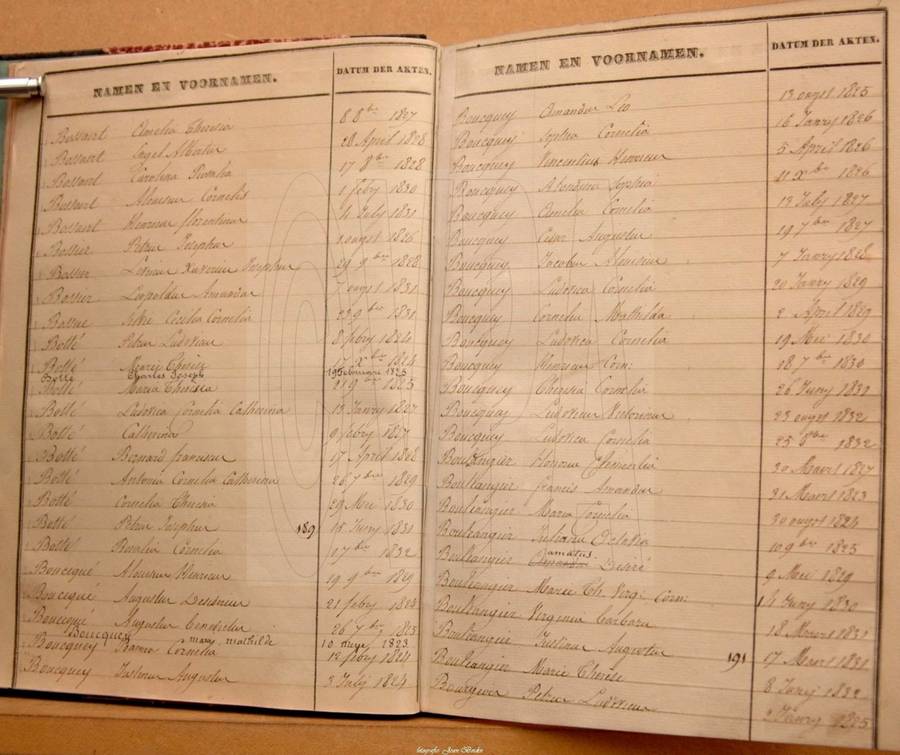 NAMEN EN VOORNAMEN. DATUM DER AKTEN.
Bossart Amelia Theresia 8 8bre 1827
Bossart Engel Albertus 28 April 1828
Bossart Carolina Rosalia 17 8bre 1828
Bossart Aloysius Cornelis 1 feby 1830
Bossart Henricus Florentinus 4 July 1831
Bossier Petrus Josephus 1 augst 1826
Bossier Xaverius Josephus 29 9bre 1828
Bossier Leopoldus Amandus 7 augst 1831
Bossue Cecilia Cornelia 23 9bre 1831
Botté Petrus Ludovicus 8 febry 1824
Botté Marie Thérèse 17 Xbre 1824
Botte Charles Joseph 19 februarie 1825
Botté Maria Theresia 21 9bre 1825
Botté Ludovica Cornelia Catharina 13 Janry 1827
Botté Catharina 9 febry 1827
Botté Bernard franciscus 17 April 1828
Botté Antonia Cornelia Catharina 26 7bre 1829
Botté Cornelia Theresia 29 Mei 1830
Botté Petrus Josephus 189 15 Juny 1831
Botté Rosalia Cornelia 17 bre 1832
Boucqué Aloysius Henricus 19 9bre 1829
Boucqué Augustus Desiderius 21 febry 1824
Boucqué Augustus 26 7bre 1825
Boucquey mary mathilde 10 1823
Boucquey Cornelia 12 febry 1824
Boucquey Justinus Augustus 3 July 1824
NAMEN EN VOORNAMEN. DATUM DER AKTEN.
Boucquey Amandus Leo 13 augst 1825
Boucquey Sophia Cornelia 16 Janry 1826
Boucquey Vincentius Henricus 5 April 1826
Boucquey Sophia 21 Xbre 1826
Boucquey Amelia Cornelia 12 July 1827
Boucquey Augustus 19 7bre 1827
Boucquey Jacobus Aloysius 7 Janry 1828
Boucquey Ludovica Cornelia 20 Janry 1829
Boucquey Cornelia Mathilda 2 April 1829
Boucquey Ludovica Cornelia 19 Mei 1830
Boucquey Henricus Corn: 18 7bre 1830
Boucquey Theresia Cornelia 26 Juny 1831
Boucquey Ludovicus Victorinus 23 augst 1832
Boucquey Ludovica Cornelia 25 8bre 1832
Boullangier 20 Maart 1827
Boullangier francis Amandus 31 Maart 1823
Boullangier Maria Cornelia 30 augst 1824
Boullangier Juliana 10 9bre 1825
Boullangier amatus Désiré 9 Mei 1829
Boullangier Marie Th: Virg: Corn: 14 Juny 1830
Boullangier Virginia Barbara 18 Maart 1831
Boullangier Justinus Augustus 191 17 Maart 1831
Boullangier Marie Thérèse 8 Juny 1832
Petrus Ludovicus Janry 1825
fotografie